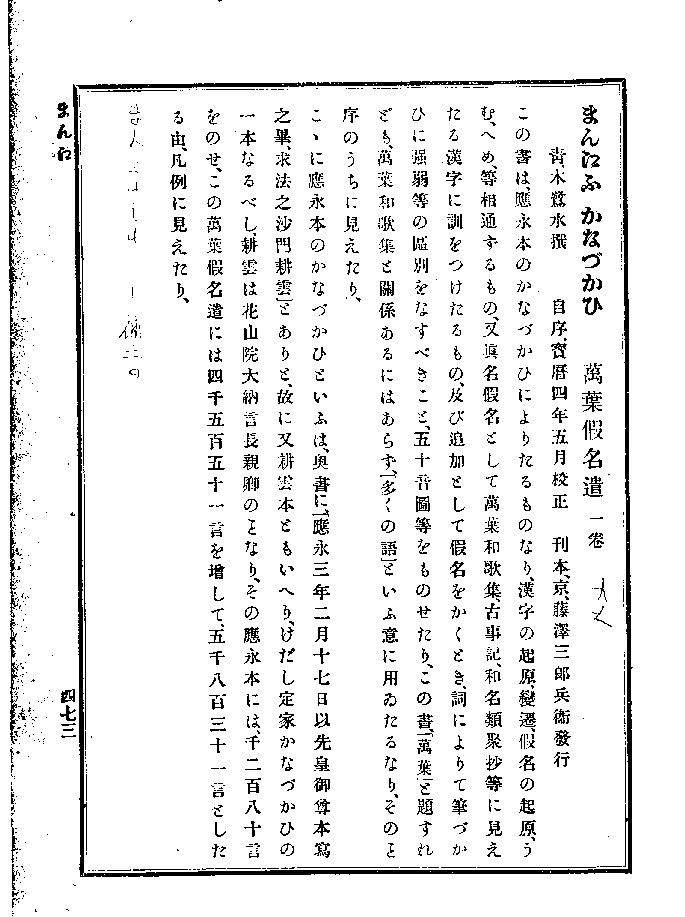 まんえふ かなづかひ 萬葉假名遣 一卷
青木鷺水撰 自序、寶曆四年五月校正 刊本、京、藤澤三郎兵衞發行
この書は、應永本のかなづかひによりたるものなり、漢字の起原、變遷、假名の起原、う
む、へめ、等相通ずるもの、又眞名假名として萬葉和歌集、古事記、和名類聚抄等に見え
たる漢字に訓をつけたるもの、及び追加として假名をかくとき、詞によりて筆づか
ひに强弱等の區別をなすべきこと、五十音圖等をものせたり、この書、「萬葉」と題すれ
ども、萬葉和歌集と關係あるにはあらず、「多くの語」といふ意に用ゐたるなり、そのと
序のうちに見えたり、
こゝに應永本のかなづかひといふは、奧書に、「應永三年二月十七日以先皇御尊本寫
之畢、求法之沙門耕雲」とありと、故に又耕雲本ともいへり、けだし定家かなづかひの
一本なるべし、耕雲は花山院大納言長親卿のとなり、その應永本には、千二百八十言
をのせ、この萬葉假名遣には四千五百五十一言を增して、五千八百三十一言とした
る由、凡例に見えたり、
まんえ
四七三